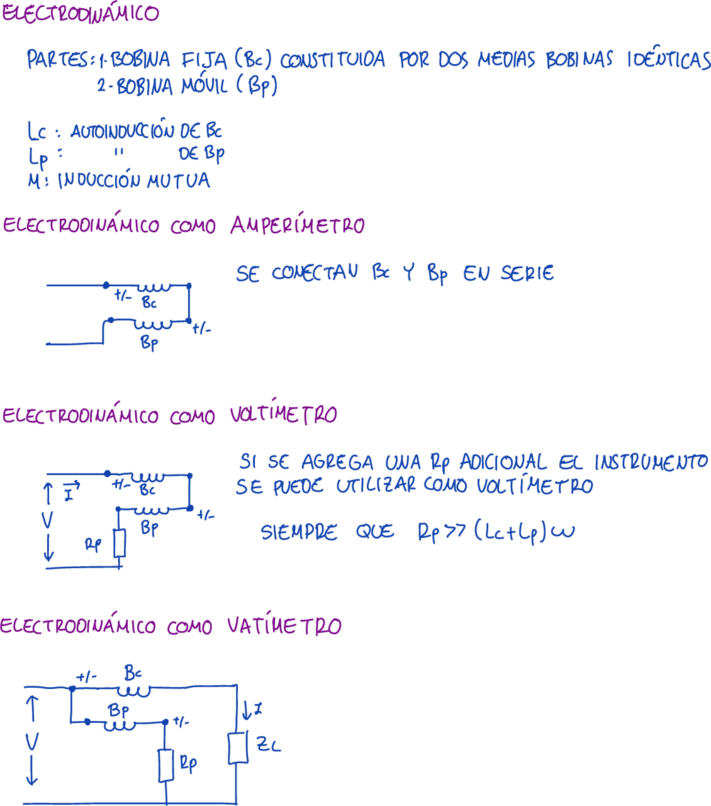 ELECTRODINÁMICO
PARTES: 1-BOBINA FIJA (Bc) CONSTITUIDA POR DOS MEDIAS BOBINAS IDÉNTICAS
2-BOBINA MÓVIL (Bp)
Lc : AUTOINDUCCIÓN DE Bc
Lp : " DE Bp
M: INDUCCIÓN MUTUA
ELECTRODINÁMICO COMO AMPERÍMETRO
SE CONECTAN Bc Y Bp EN SERIE
+/- Bc
Bp +/-
ELECTRODINÁMICO COMO VOLTÍMETRO
SI SE AGREGA UNA Rp ADICIONAL EL INSTRUMENTO
SE PUEDE UTILIZAR COMO VOLTÍMETRO
I +/- Bc
V Bp +/-
Rp
SIEMPRE QUE Rp>>(Lc+Lp)ω
ELECTRODINÁMICO COMO VATÍMETRO
+/- Bc
Bp +/- I
V Rp ZL